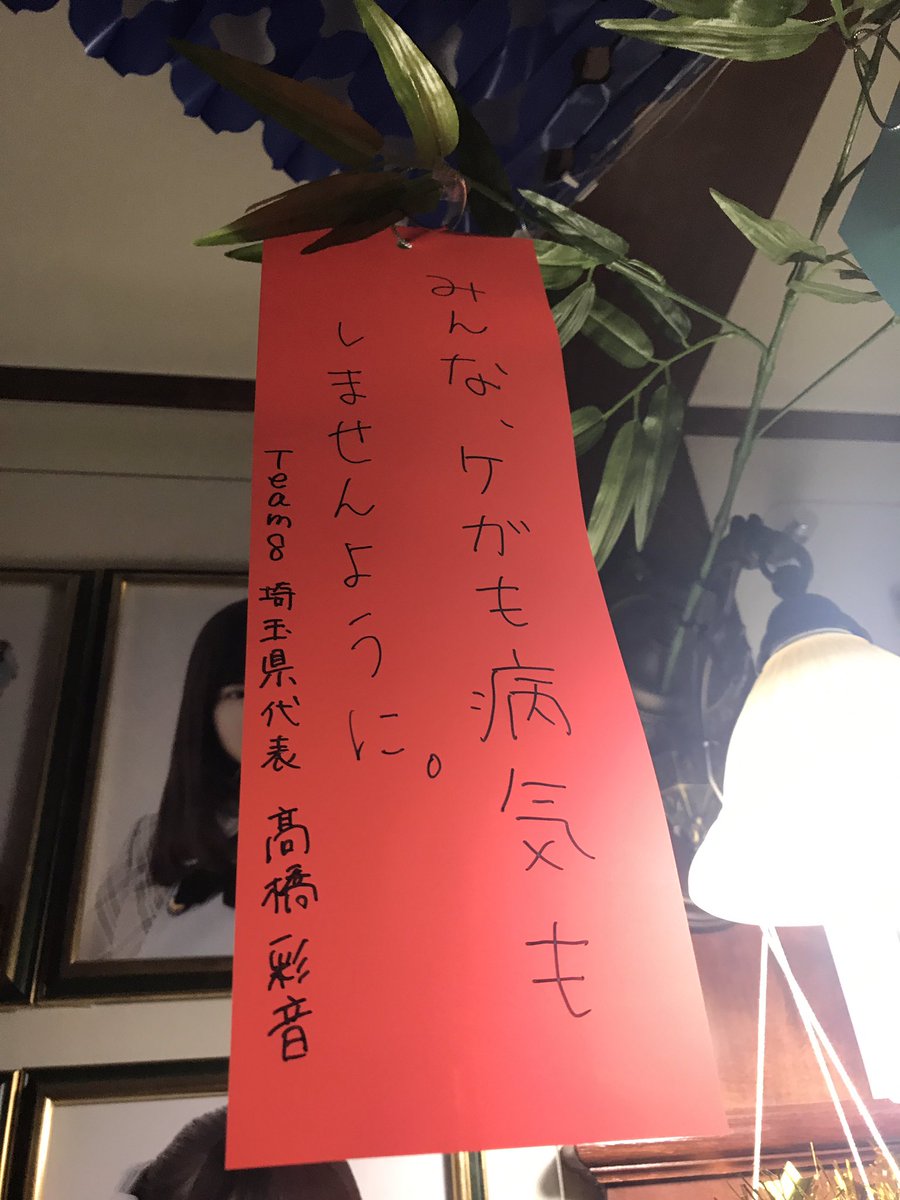 みんな、ケがも病気も
しませんように。
Team8 埼玉県代表 髙橋彩音